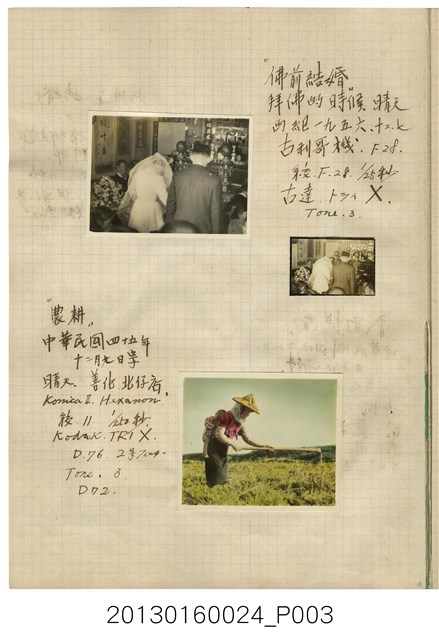 "佛前結婚"
拜佛的時候 晴天
西紀一九五六.十二.七
古利哥機 F.28.
絞.F.28. 1/25秒
古達.トライ X.
Tone.3.
"農耕"
中華民國四十五年
十二月七日
晴天 善化 北仔店.
Konica II. Hexanon
絞.11 1/50秒.
Kodak.TRI X.
D.76. 2号
Tone. 3
D72.
20130160024_P003